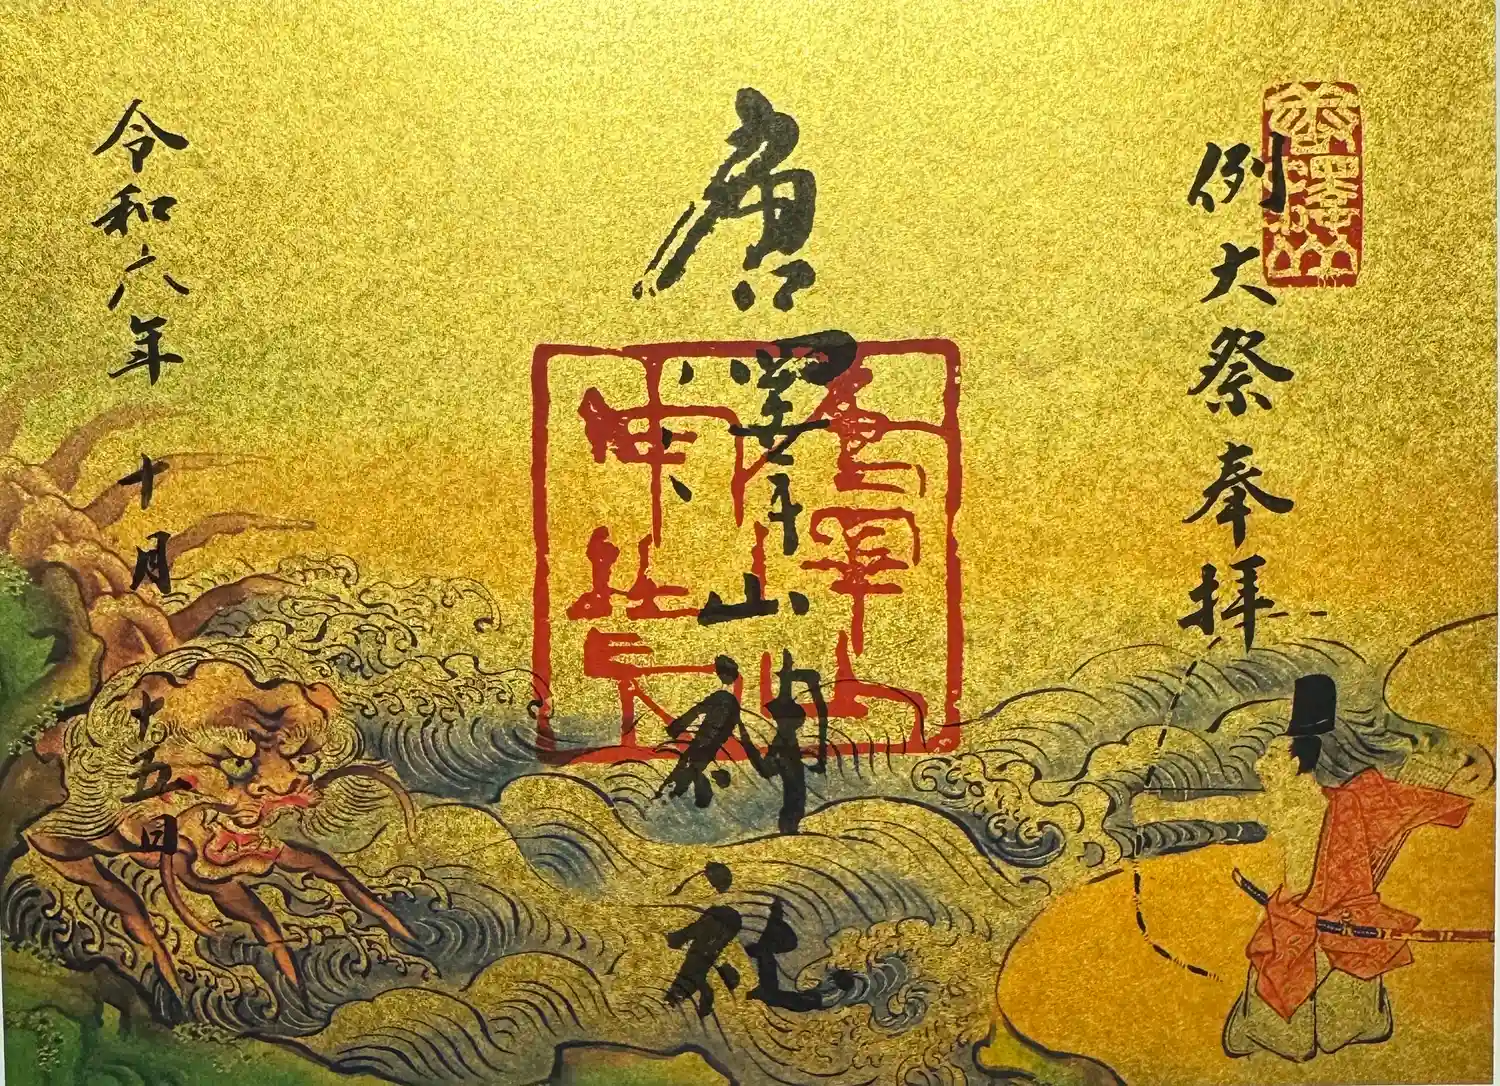 例大祭奉拝
唐澤山
唐澤山神社
令和六年十月十五日